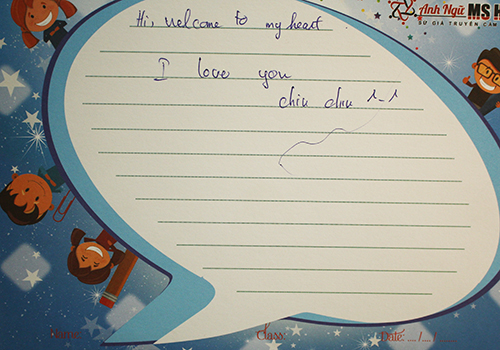 Hi, welcome to my heart
I love you
chiu chiu ^-^
Anh Ngữ MS H
SỨ GIẢ TRUYỀN CẢM
Name:
Class:
Date: ..../..../....